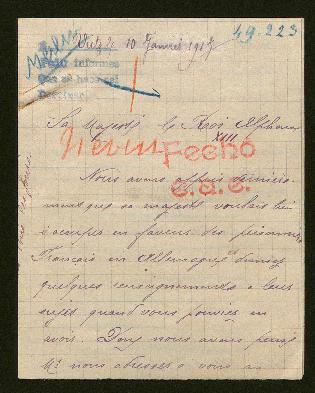 49.223
le 10 Janvier 1917
Pedir informes
Que se haga así
Sa Majesté le Roi Alphonse
XIII
Fecho
Nous avons appris dernière
ment que sa majesté voulait bien
s'occuper en faveur des prisonniers
Français en Allemagne
quelques renseignements a leur
sujet quand vous pouviez en
avoir. Donc nous avons pensé
nous adresser a vous